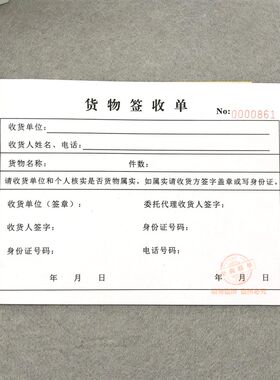 货物签收单
No: 0000861
收货单位:
收货人姓名、电话:
货物名称: 件数:
请收货单位和个人核实是否货物属实，如属实请收货方签字盖章或写身份证。
收货单位（签章）: 委托代理收货人签字:
收货人签字: 身份证号码:
身份证号码: 电话号码:
年 月 日 年 月 日